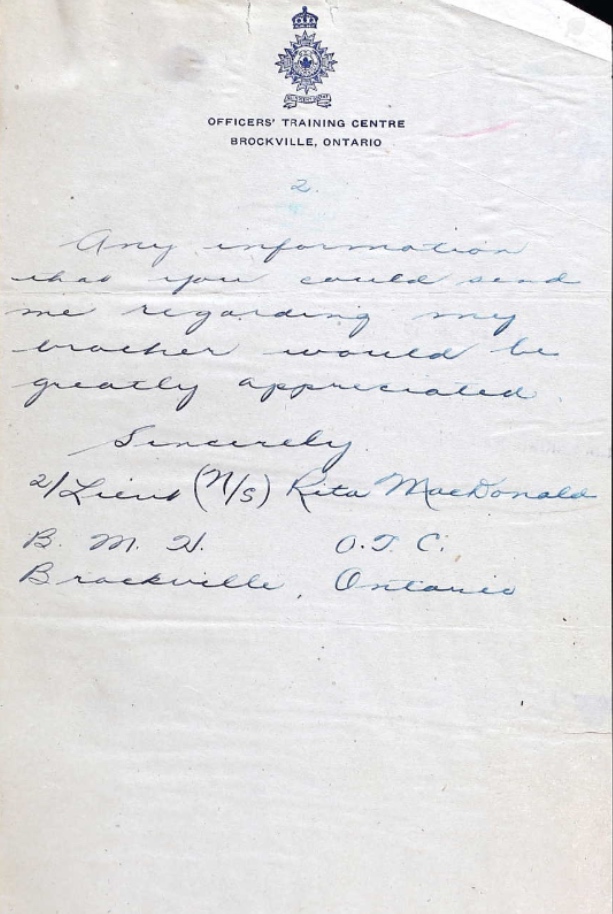 OFFICERS' TRAINING CENTRE
BROCKVILLE, ONTARIO
2.
Any information
that you could send
me regarding my
brother would be
greatly appreciated
Sincerely
2/Lieut (N/S) Rita MacDonald
B. M. H. O.T.C.
Brockville, Ontario